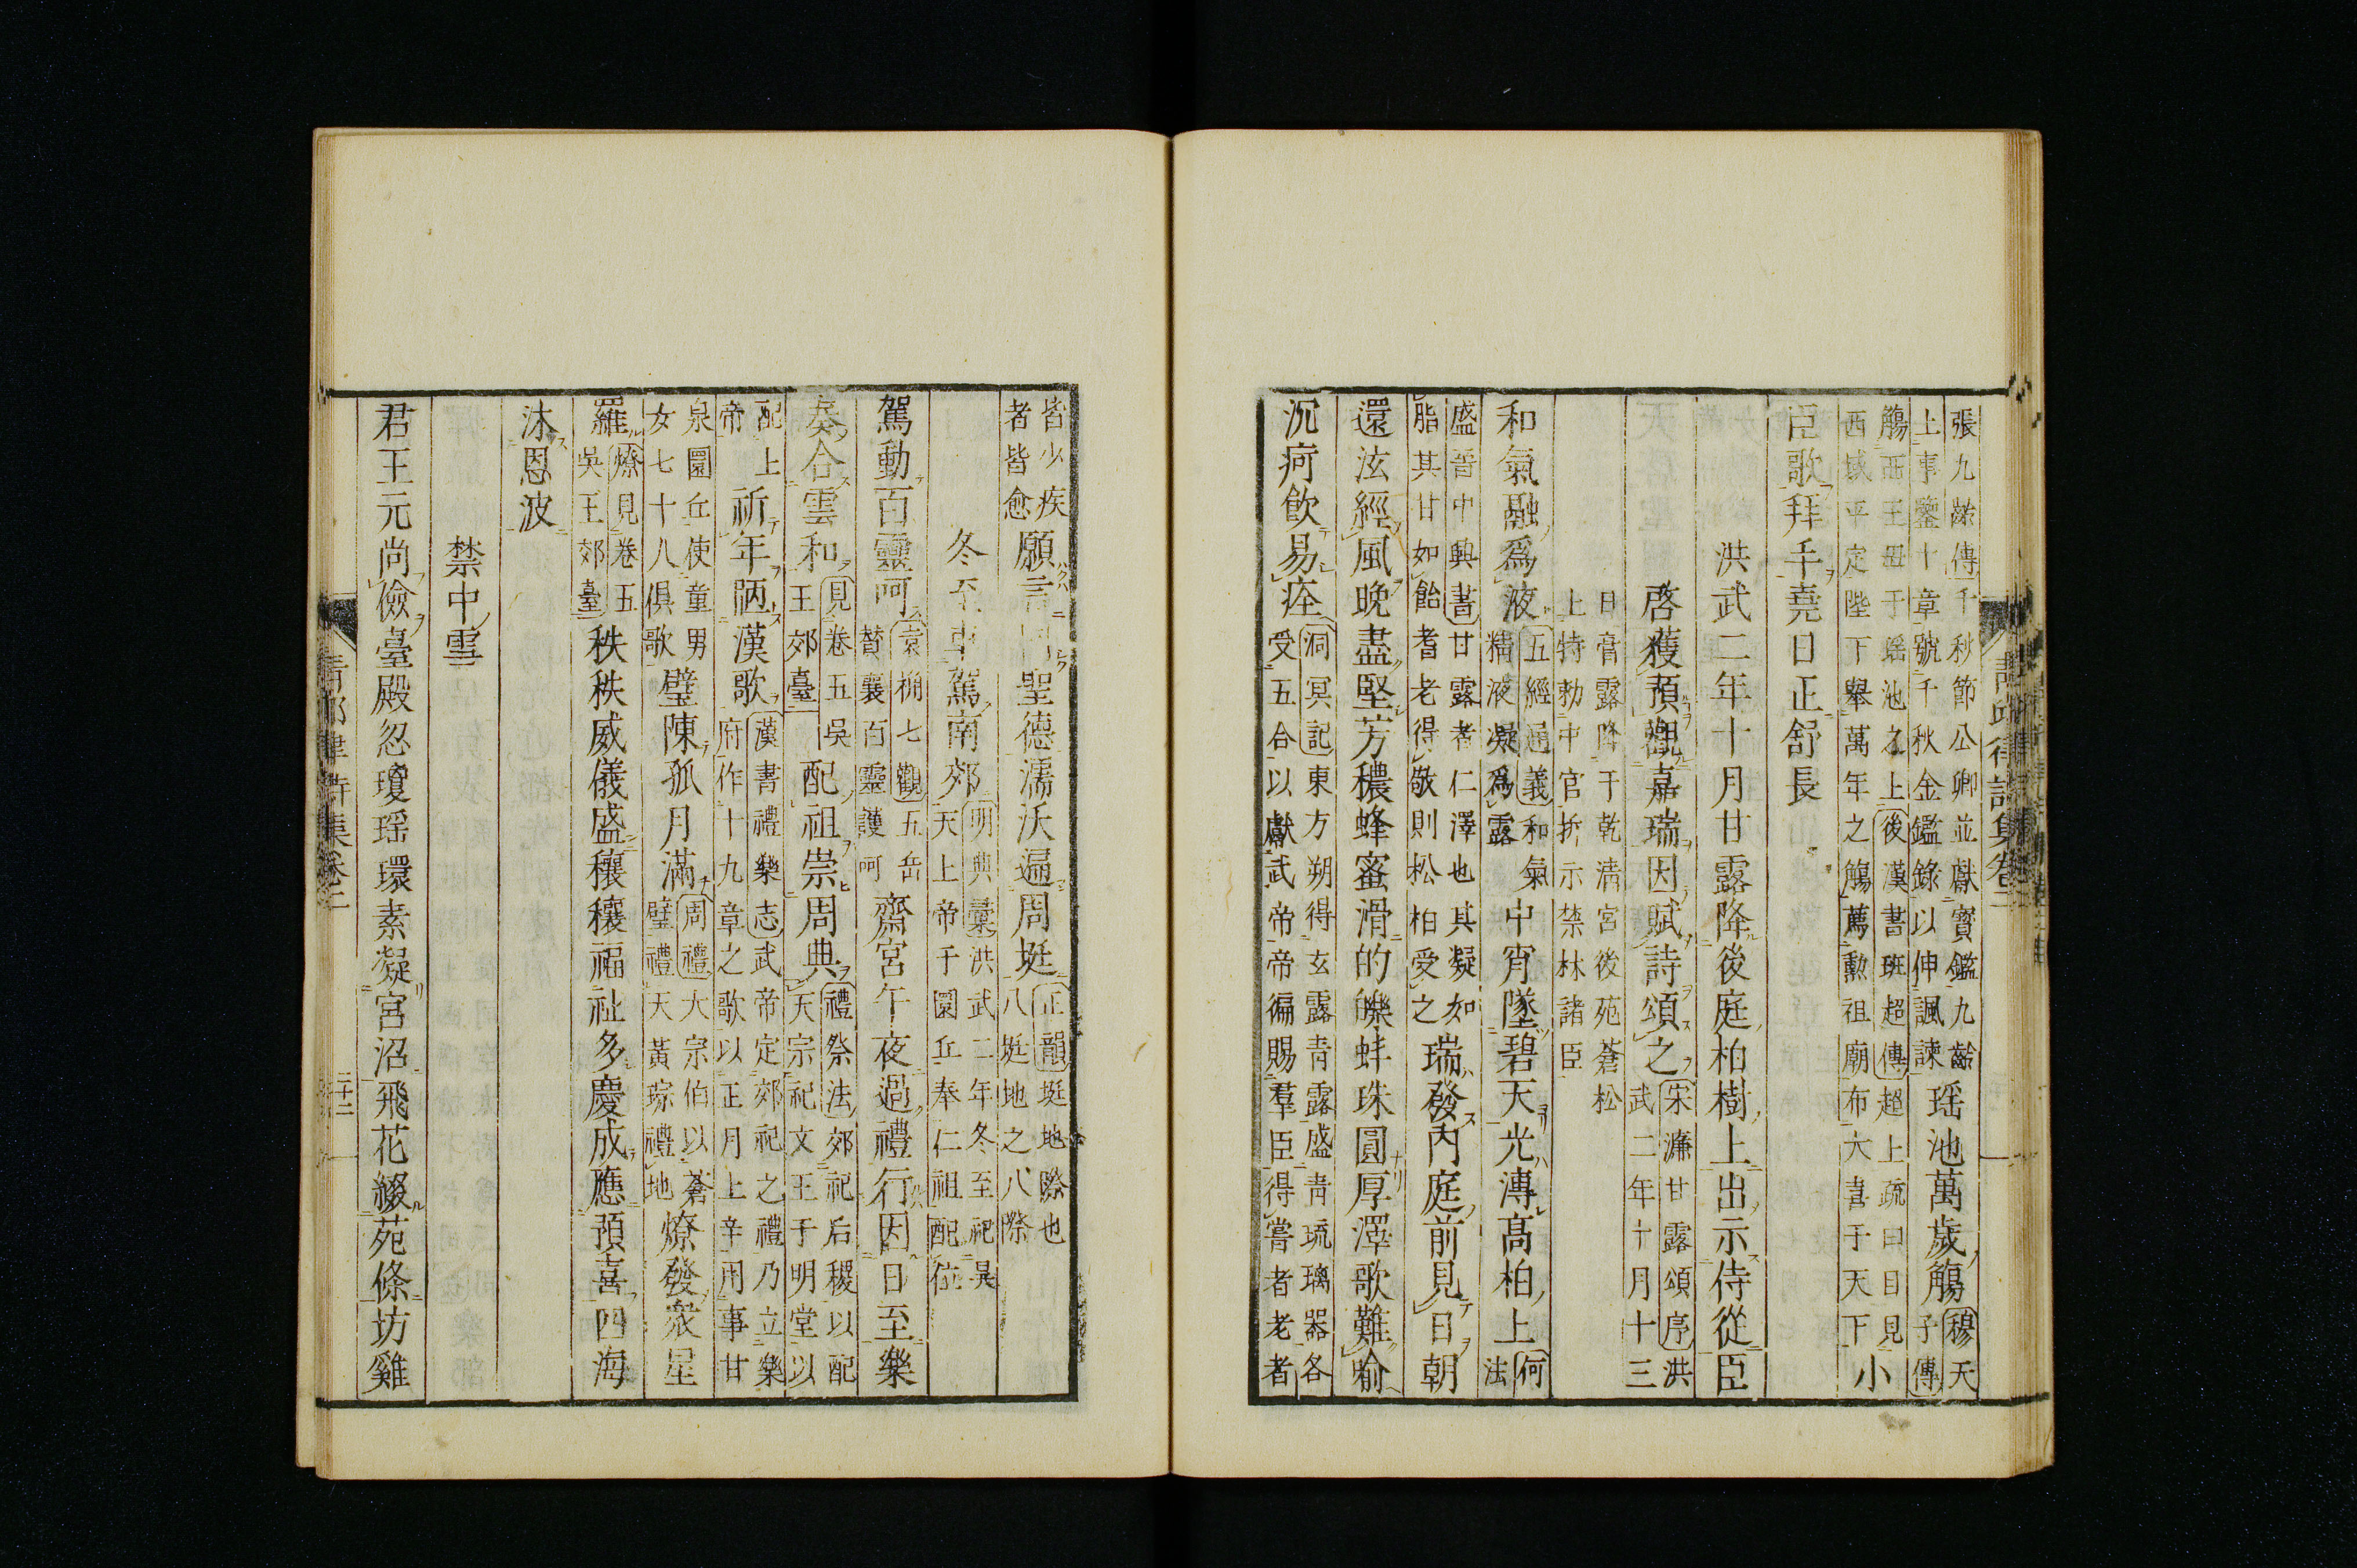 張九齡傳千秋節公卿並獻寶鑑九齡
上事鑒十章號千秋金鑑錄以伸諷諫
瑤池萬歲觴
穆天
子傳
觴西王母于瑤池之上後漢書班超傳超上疏曰日見
西域平定陛下舉萬年之觴薦勲祖廟布大喜于天下
小
臣歌拜手堯日正舒長
洪武二年十月甘露降後庭柏樹上出示侍從臣
啓獲預觀嘉瑞因賦詩頌之
宋濂甘露頌序洪
武二年十月十三
日膏露降于乾清宮後苑蒼松
上特勅中官折示禁林諸臣
和氣融爲液
五經通義和氣
精液凝爲露
中宵墜碧天光溥高柏上
何
法
盛晉中興書甘露者仁澤也其凝如
脂其甘如飴耆老得敬則松柏受之
瑞發內庭前見日朝
還泫經風晚盡堅芳穠蜂蜜滑的皪蚌珠圓厚澤歌難喻
沉痾飲易痊
洞冥記東方朔得玄露青露盛青琉璃器各
受五合以獻武帝帝徧賜羣臣得嘗者老者
皆少疾
者皆愈
願言 聖德濡沃遍周埏
正韻埏地際也
八埏地之八際
冬至車駕南郊
明典彙洪武二年冬至祀昊
天上帝于圜丘奉仁祖配位
駕動百靈呵
袁桷七觀五岳
贊襄百靈護呵
齋宮午夜過禮行因日至樂
奏合雲和
見卷五吳
王郊臺
配祖崇周典
禮祭法郊祀后稷以配
天宗祀文王于明堂以
配上
帝
祈年陋漢歌
漢書禮樂志武帝定郊祀之禮乃立樂
府作十九章之歌以正月上辛用事甘
泉圜丘使童男
女七十八俱歌
璧陳孤月滿
周禮大宗伯以蒼
璧禮天黃琮禮地
燎發衆星
羅
燎見卷五
吳王郊臺
秩秩威儀盛穰穰福祉多慶成應預喜四海
沐恩波
禁中雪
君王元尚儉臺殿忽瓊瑤環素凝宮沼飛花綴苑條坊雞
青邱律詩集卷二
二十二